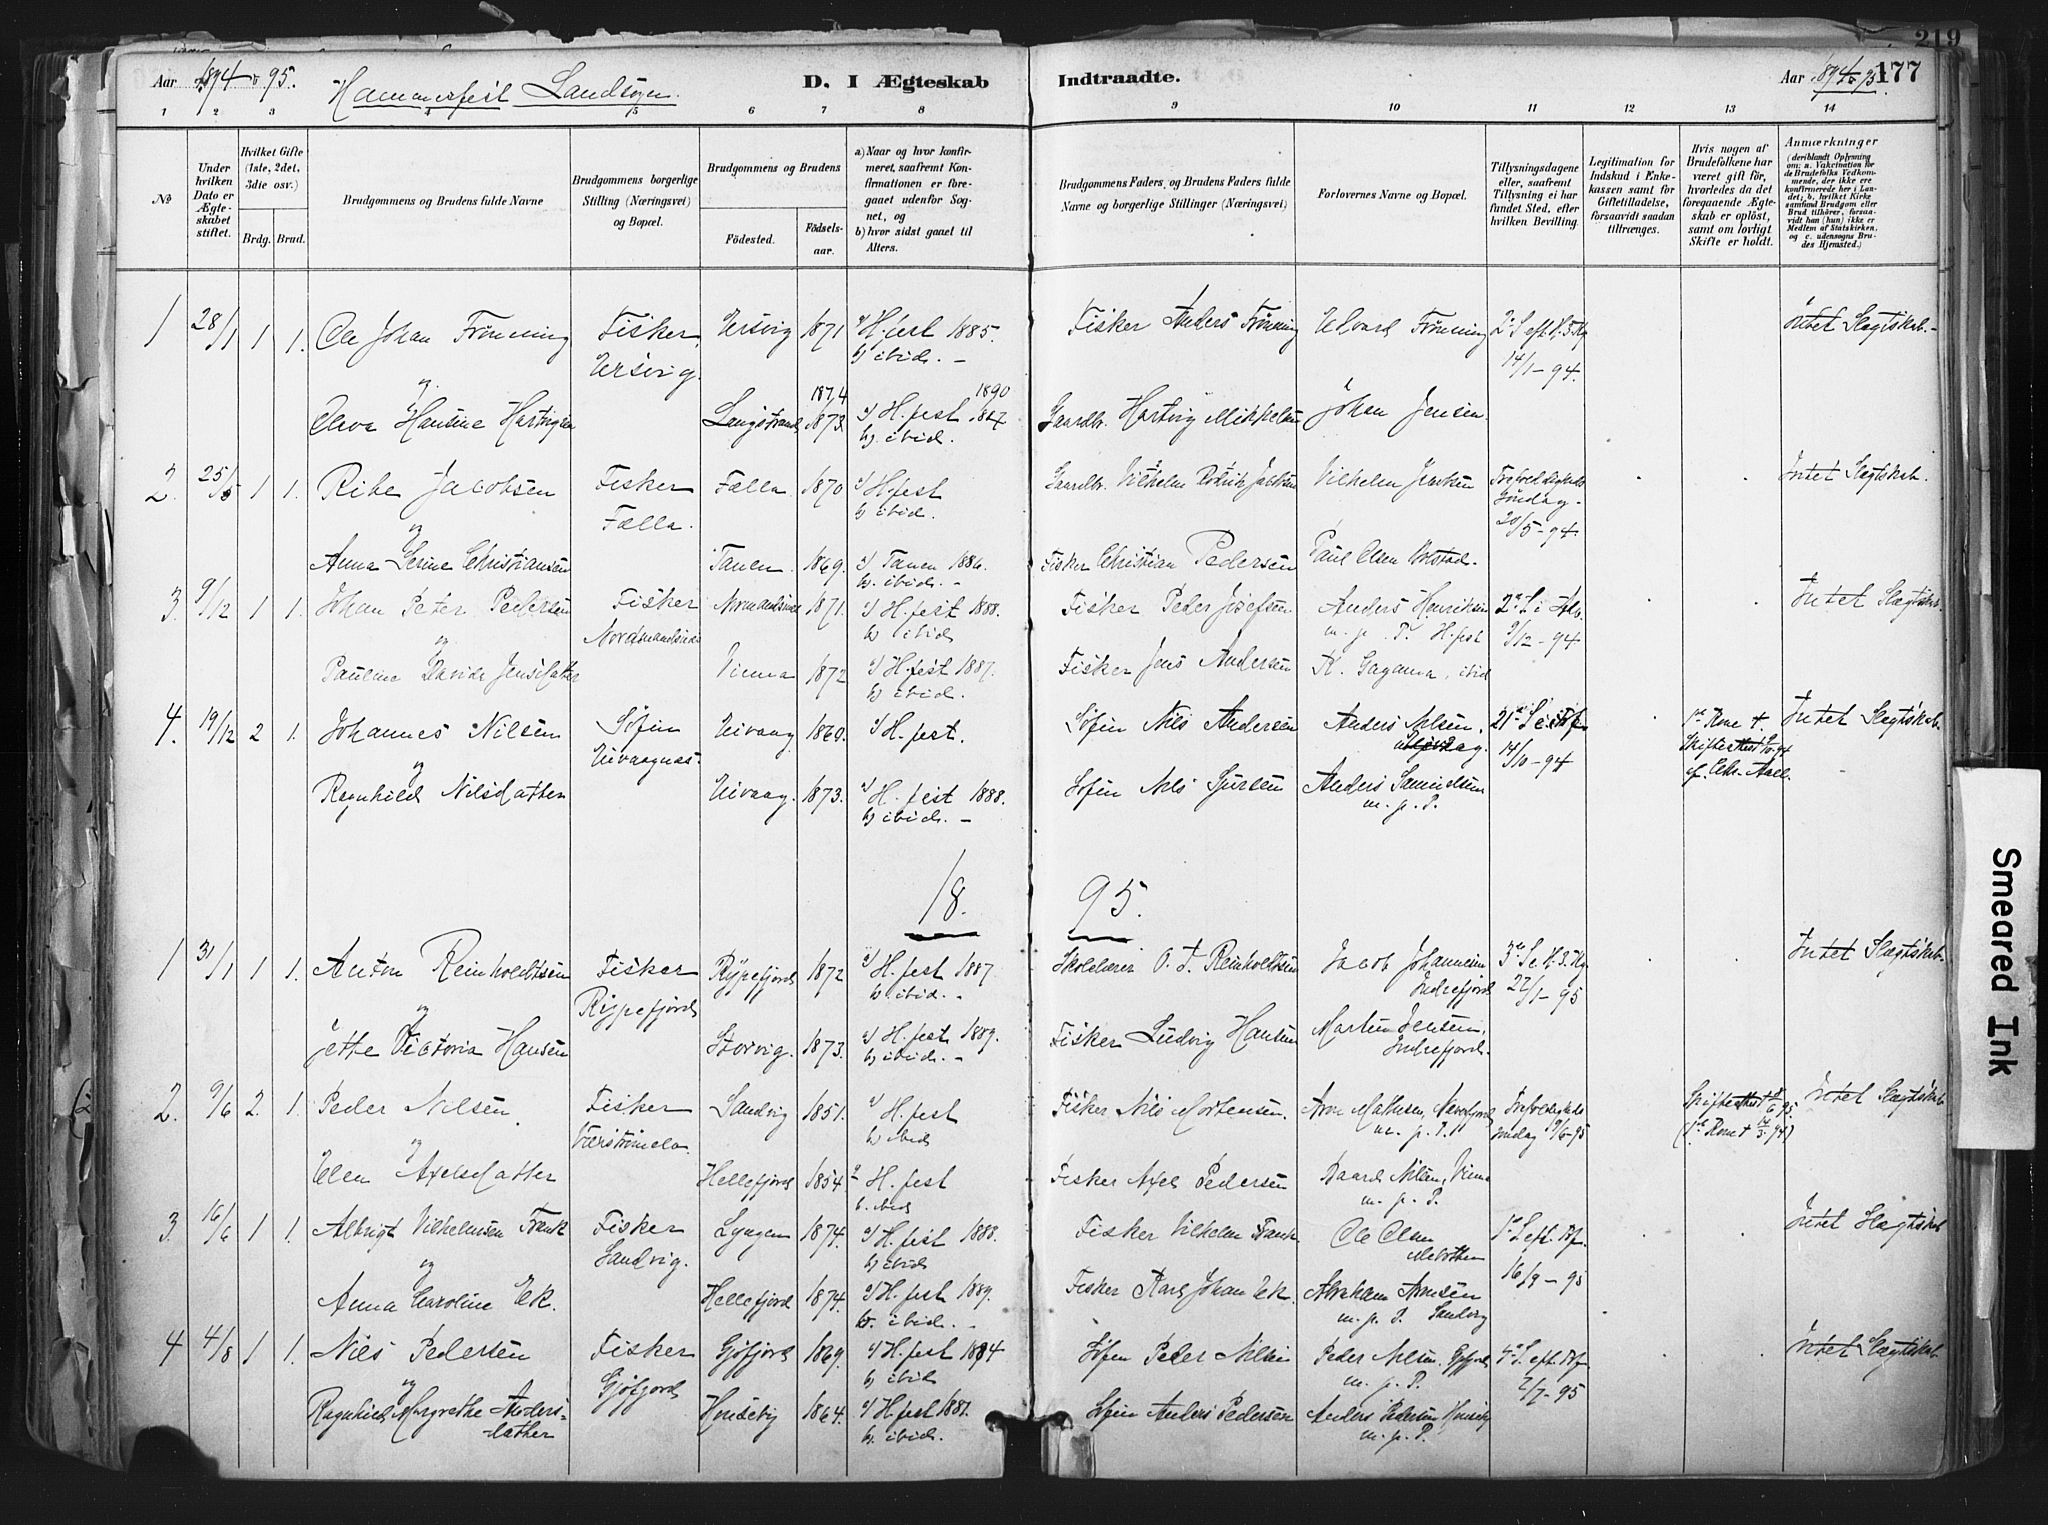 219
Aar 1894 o 95. Hammerfest Landsogn. D. I Ægteskab Indtraadte. Aar 1894 o 95. 177
1 2 3 4 5 6 7 8 9 10 11 12 13 14
No
Under hvilken Dato er Ægteskabet stiftet.
Hvilket Gifte (1ste, 2det, 3die osv.)
Brdg. Brud.
Brudgommens og Brudens fulde Navne
Brudgommens borgerlige Stilling (Næringsvei) og Bopæl.
Brudgommens og Brudens
Födested. Födselsaar.
a) Naar og hvor konfirmeret, saafremt Konfirmationen er foregaaet udenfor Sognet, og
b) hvor sidst gaaet til Alters.
Brudgommens Faders og Brudens Faders fulde Navne og borgerlige Stillinger (Næringsvei)
Forlovernes Navne og Bopæl.
Tillysningsdagene eller, saafremt Tillysning ei har fundet Sted, efter hvilken Bevilling.
Legitimation for Indskud i Enkekassen samt for Giftetilladelse, forsaavidt saadan tiltrænges.
Hvis nogen af Brudefolkene har været gift för, hvorledes da det foregaaende Ægteskab er oplöst, samt om lovligt Skifte er holdt.
Anmærkninger
(deriblandt Oplysning om: a. Vakcination for de Brudefolks Vedkommende, der ikke ere konfirmerede her i Landet; b. hvilket Kirkesamfund Brudgom eller Brud tilhörer, forsaavidt han (hun) ikke er Medlem af Statskirken, og c. udensogns Brudes Hjemsted.)
1 28/1 1 1. Ole Johan Frönning Fisker, Ersvig 1871 a) H.fest 1885. Fisker Anders Frönning Edvard Frönning 2 S. eft. H. 3 Kg. Intet Slagtskab.
og Ersvig. b) ibid. 14/1-94.
Hansine Langstrand 1874 1873 a) H.fest 1890 Gaardbr. Hartvig Mikkelsen Johan Jensen.
b) ibid.
2. 25/5 1 1. Jacobsen Fisker Fælla 1870 a) H.fest Gaardbr. Vilhelm Vilhelm Intet Slagtskab.
og Fælla. b) ibid. Söndag 20/5-94.
Anna Serine Christiansen Tanen 1869. a) Tanen 1886. Fisker Christian Pedersen Paul Olsen
b) ibid.
3. 9/12 1 1. Johan Peter Pedersen Fisker 1871. a) H.fest 1888. Fisker Peder Josefsen Anders Henriksen 2 S. i Adv. Intet Slagtskab.
og b) ibid m. p. P. H.fest 9/12-94
Pauline Jensdatter 1872 a) H.fest 1887. Fisker Jens Andersen K. Gaganna, ibid
b) ibid.
4. 19/12 2 1. Johannes Nilsen Söfin 1860. a) H.fest. Söfin Nils Andersen Anders Nilsen, 21 S. e. Trf. 1st Kone †. Intet Slagtskab.
og 14/10-94 Skifteattest 9/10-94
Ragnhild Nilsdatter 1873. a) H.fest 1888. Söfin Nils Sjursen Anders Samuelsen
b) ibid. m. p. P.
18. 95.
1 31/1 1 1. Anton Reinholdtsen Fisker Rypefjord 1872 a) H.fest 1887. Skolelærer O. J. Reinholdtsen Jacob Johannesen 3 S. e. H. 3. Kg. Intet Slagtskab.
og Rypefjord b) ibid. Indrefjord 27/1-95
Jette Victoria Hansen Storvig. 1873. a) H.fest 1889. Fisker Ludvig Hansen Martin Jensen,
b) ibid. Indrefjord.
2. 9/6 2. 1. Peder Nilsen Fisker Sandvig 1851. a) H.fest Fisker Nils Mortensen. Arne Mathisen, Trefoldigheds Skifteattest 8/6 95. Intet Slagtskab.
og b) ibid m. p. P. söndag 9/6-95 (1st Kone † 94)
Elen Axelsdatter Hellefjord 1854 a) H.fest Fisker Axel Pedersen Baard Nilsen,
b. ibid m. p. P.
3. 16/6 1 1. Albrigt Vilhelmsen Frank Fisker Lyngen 1874. a) H.fest 1888. Fisker Vilhelm Frank. Ole Olsen 1 S. eft. Trf. Intet Slagtskab
og Sandvig. b) ibid 16/9-95
Anna Caroline Ek. Hellefjord 1874. a) H.fest 1889. Fisker Karl Johan Ek. Abraham Arnesen
b. ibid. m. p. P. Sandvig
4 4/8 1 1. Nils Pedersen Fisker Gjöfjord 1869. a) H.fest 1884 Söfin Peder Nilsen Peder Nilsen, Gjöfjord 4 S. eft. Trf. Intet Slagtskab.
og Gjöfjord b) ibid m. p. P. 7/7-95
Ragnhild Margrethe Andersdatter Honseby 1864. a) H.fest 1881. Söfin Anders Pedersen Anders Pedersen Honseby
b. ibid. m. p. P.
Smeared Ink